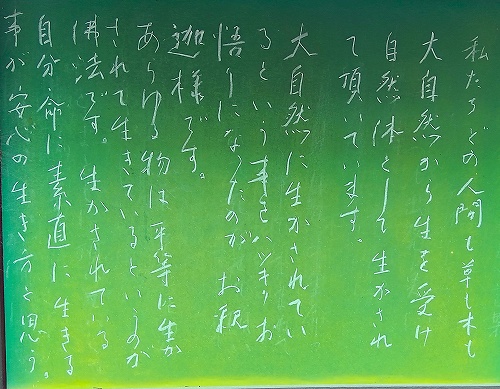 私たちどの人間も草も木も
大自然から生を受け
自然体として生かされ
て頂いています。
大自然に生かされてい
るという事をハッキリお
悟りになったのが お釈
迦様です。
あらゆる物は平等に生か
されて生きているというのが
佛法です。 生かされている
自分 命に素直に生きる
事が安心の生き方と思う。